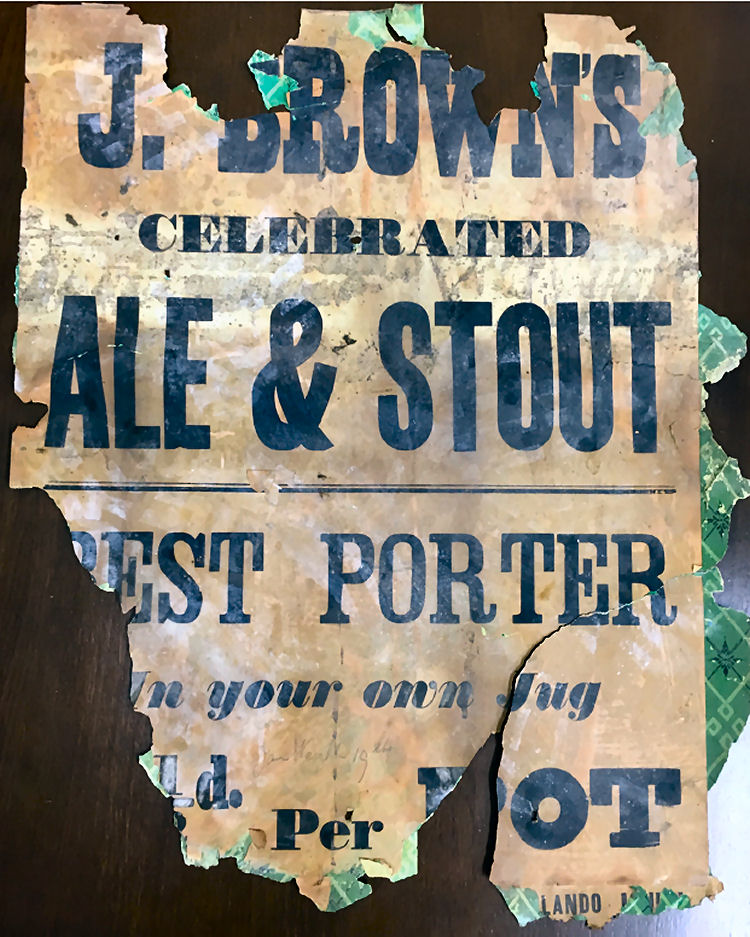 J. BROWN'S
CELEBRATED
ALE & STOUT
BEST PORTER
In your own Jug
d. Per POT
LANDO